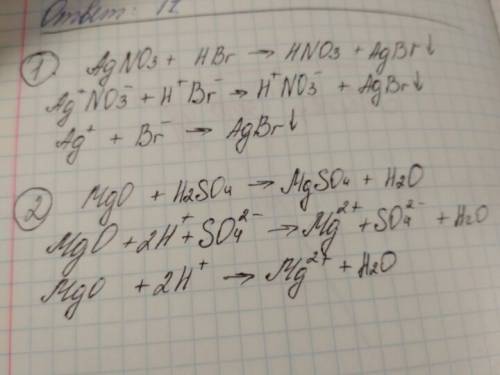 Ответ: 12
① AgNO₃ + HBr → HNO₃ + AgBr↓
Ag⁺NO₃⁻ + H⁺Br⁻ → H⁺NO₃⁻ + AgBr↓
Ag⁺ + Br⁻ → AgBr↓
② MgO + H₂SO₄ → MgSO₄ + H₂O
MgO + 2H⁺ + SO₄²⁻ → Mg²⁺ + SO₄²⁻ + H₂O
MgO + 2H⁺ → Mg²⁺ + H₂O